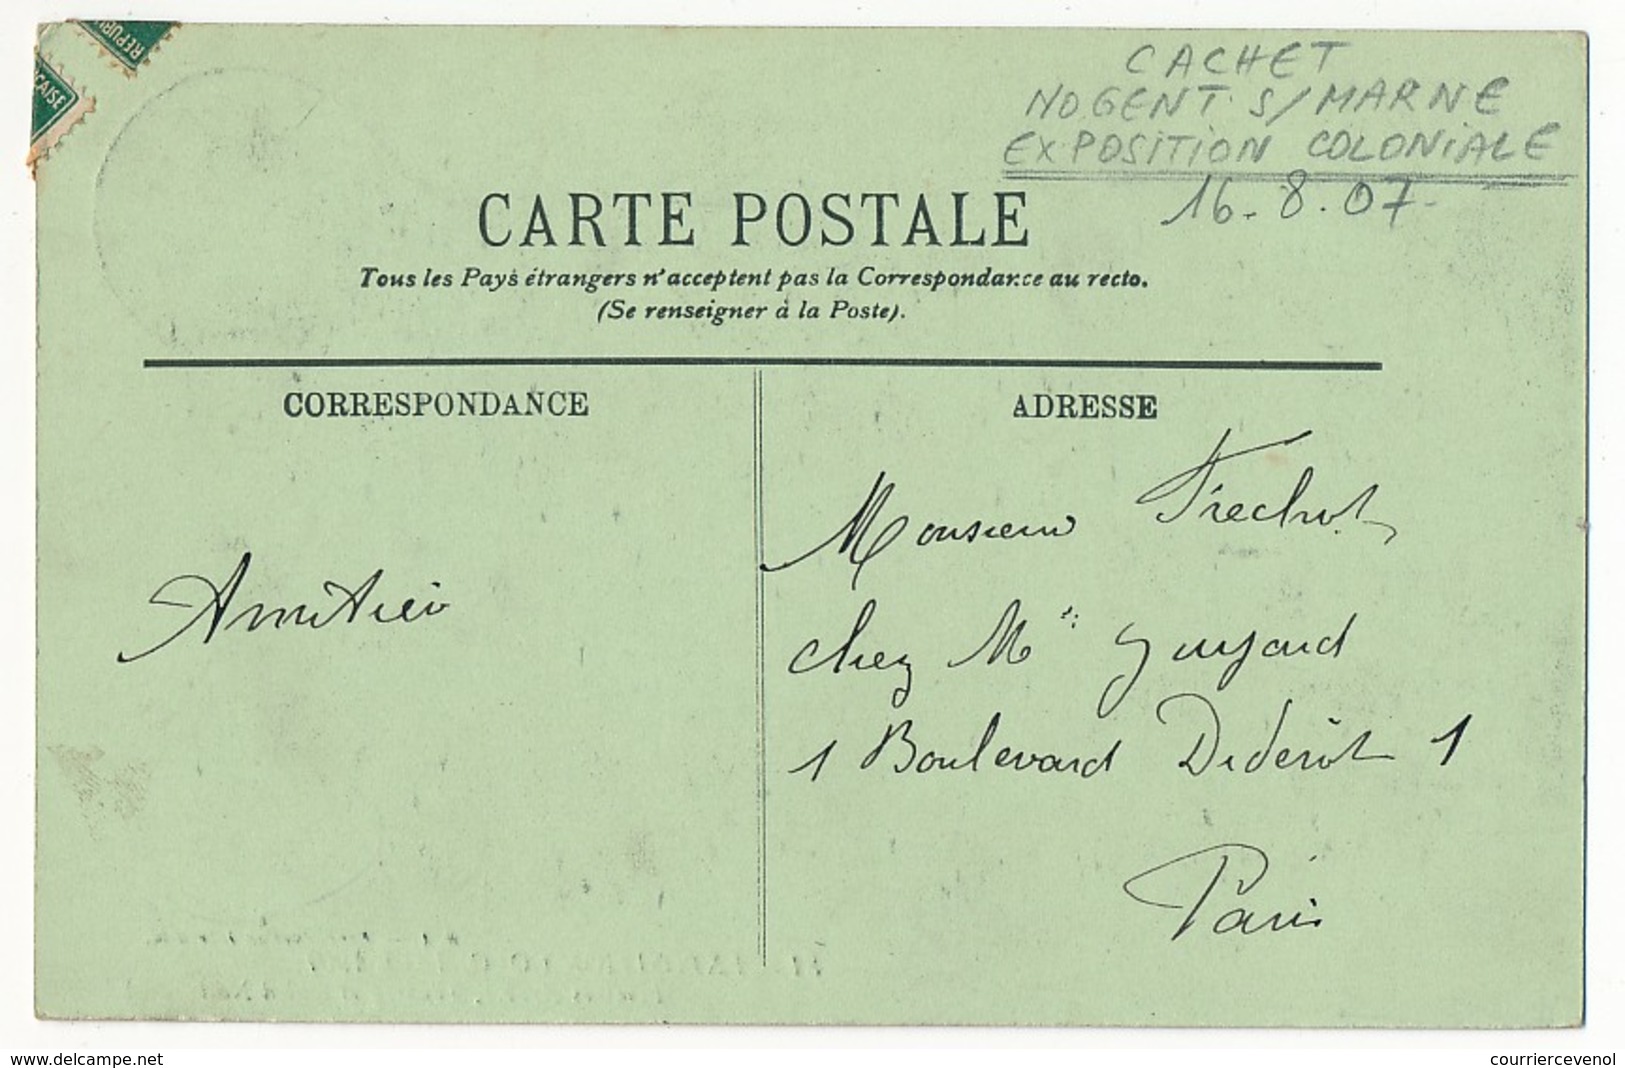 RÉPUB
ÇAISE
CACHET
NOGENT S/MARNE
EXPOSITION COLONIALE
16-8.07-
CARTE POSTALE
Tous les Pays étrangers n'acceptent pas la Correspondance au recto.
(Se renseigner à la Poste).
CORRESPONDANCE
ADRESSE
Amitiés
Monsieur Fréchot
chez Mr Guyard
1 Boulevard Diderot 1
Paris
www.delcampe.net
courriercevenol